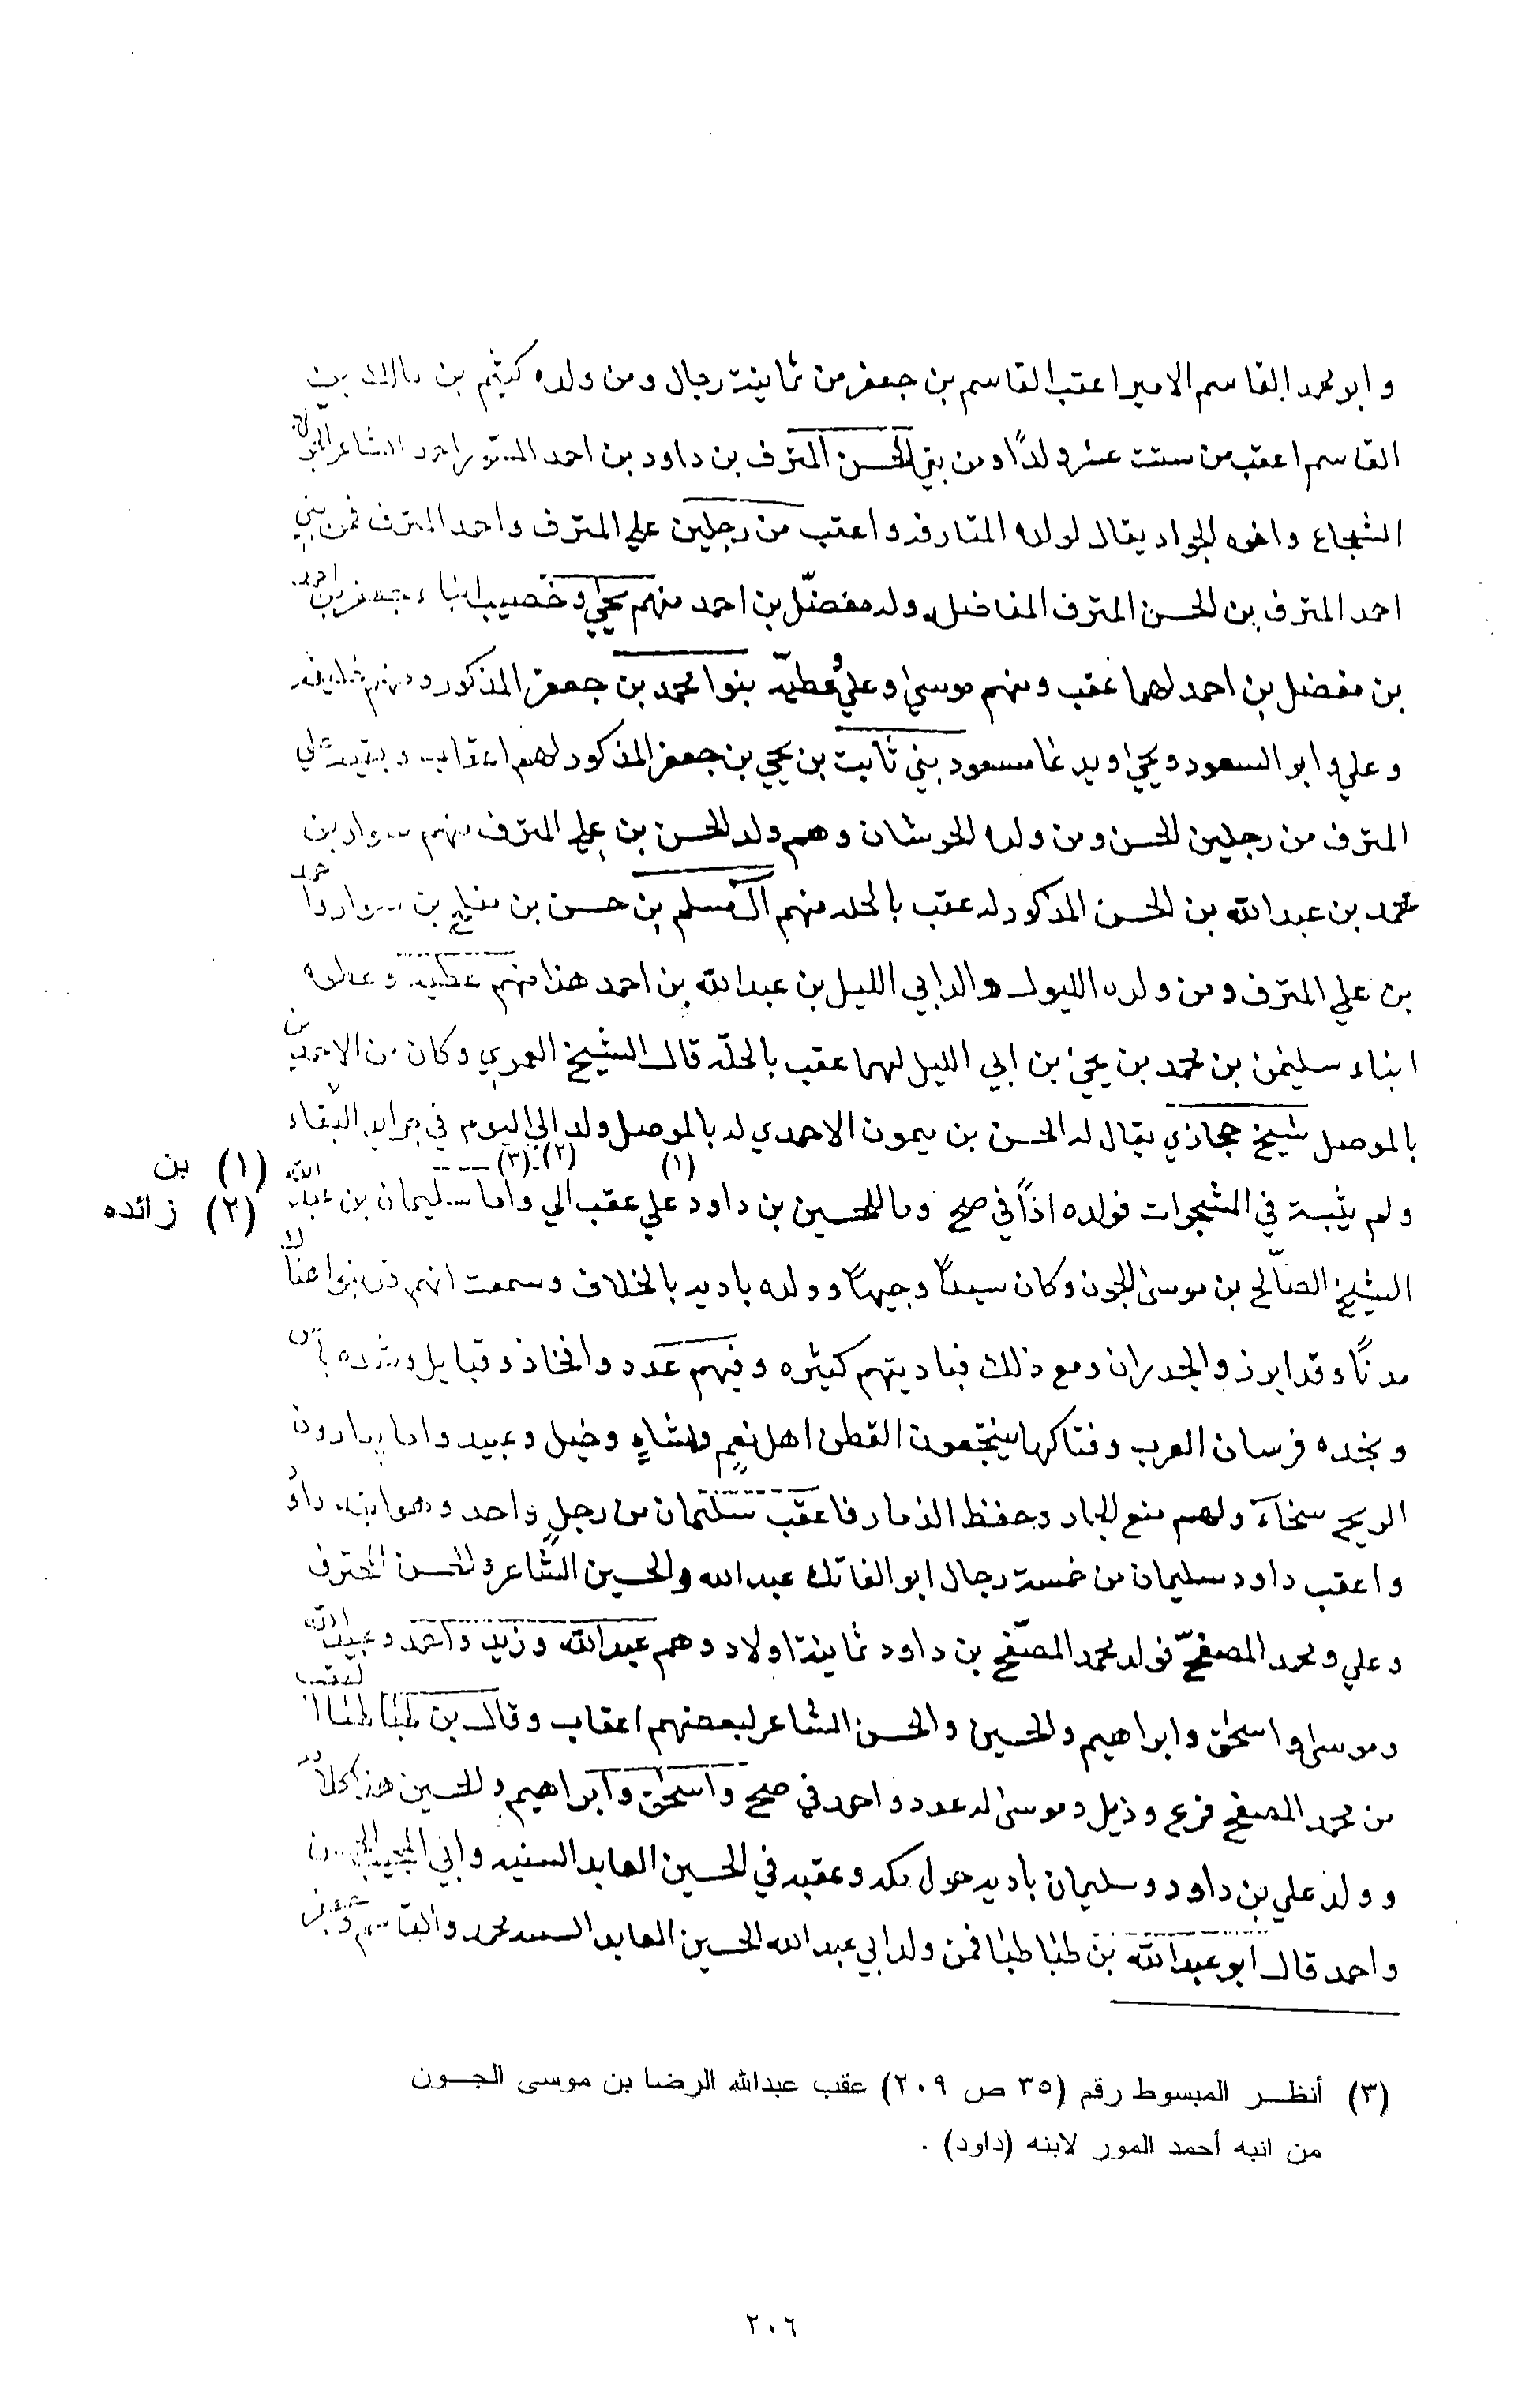 وابو محمد القاسم الامير اعقب القاسم بن جعفر من ثمانية رجال ومن ولده كيثم بن مالك بن
القاسم اعقب من ستت عشر ولدًا ومن بني الحسن المترف بن داود بن احمد المسور احمد الشاعر
الشجاع واخوه الجواد يقال لولده المتارفه واعقب من رجلين علي المترف واحمد المترف فمن بني
احمد المترف بن الحسن المترف المفاضل ولد مفضّل بن احمد منهم يحيى وخصيب ابناء جعفر بن احمد
بن مفضل بن احمد لهما عقب ومنهم موسى وعلي وعطيّه بنوا محمد بن جعفر المذكور ومنهم خليفه
وعلي وابو السعود ويحيى ويدعا مسعود بني ثابت بن يحيى بن جعفر المذكور لهم اعقاب وبقية علي
المترف من رجلين الحسن ومن ولده الخوشان وهم ولد الحسن بن علي المترف منهم سوار بن
محمد بن عبدالله بن الحسن المذكور له عقب بالحله منهم ال مسلم بن حسن بن مفلح بن سوار واحمد
بن علي المترف ومن ولده الليول والد ابي الليل بن عبدالله بن احمد هذا منهم عطيه وعطوه
ابناء سليمن بن محمد بن يحيى بن ابي الليل لهما عقب بالحلّه قال الشيخ العمري وكان من الاحمديين
بالموصل شيخ حجازي يقال له الحسن بن ميمون الاحمدي له بالموصل ولد الي اليوم في جرايد النقباء
ولم يثبت في المشجرات فولده اذًا في صح وما للحسين بن داود علي (١) عقب الي (٢) (٣) واما سليمان بن عبدالله
(١) بن
(٢) زائده
الشيخ الصالح بن موسى الجون وكان سيدًا وجيهًا وولده باديه بالخلاف وسمعت انهم قد بنوا هناك
مدنًا وقد ابرز والجدران ومع ذلك فباديتهم كثيره وفيهم عدد وافخاذ وقبايل وشده باس
ونجده فرسان العرب وفتاكها ينتجعون القطر اهل نعمٍ وشاءٍ وخيل وعبيد واما يبارون
الريح سخآءً ولهم منع الجار وحفظ الذمار فاعقب سليمان من رجلٍ واحد وهو ابنه داود
واعقب داود سليمان من خمسة رجال ابو الفاتك عبدالله والحسين الشاعر والحسن المحترف
وعلي ومحمد المصفحّ فولد محمد المصّفح بن داود ثمانية اولاد وهم عبدالله وزيد واحمد وعبيدالله
وموسى واسحق وابراهيم والحسين والحسن الشاعر لبعضهم اعقاب وقال بن طباطبا العقب
من محمد المصفح فرع وذيل وموسى له عدد واحمد في صح واسحق وابراهيم والحسين هذا كلامه
وولد علي بن داود وسليمان باديه حول مكه وعقبه في الحسين العابد السنيد وابي المجيب الحسن
واحمد قال ابو عبدالله بن طباطبا فمن ولد ابي عبدالله الحسين العابد السيد محمد والقاسم وجعفر
(٣) أنظر المبسوط رقم (٣٥ ص ٢٠٩) عقب عبدالله الرضا بن موسى الجون
من انبه أحمد المور لابنه (داود) .
٢٠٦